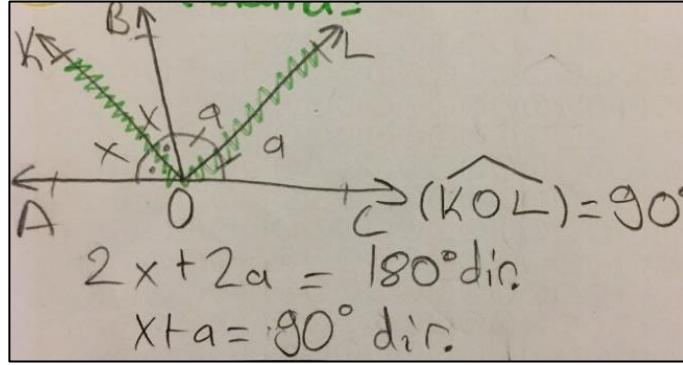 K B L
x x a a
A O C (KOL) = 90°
2x + 2a = 180° dir.
x + a = 90° dir.